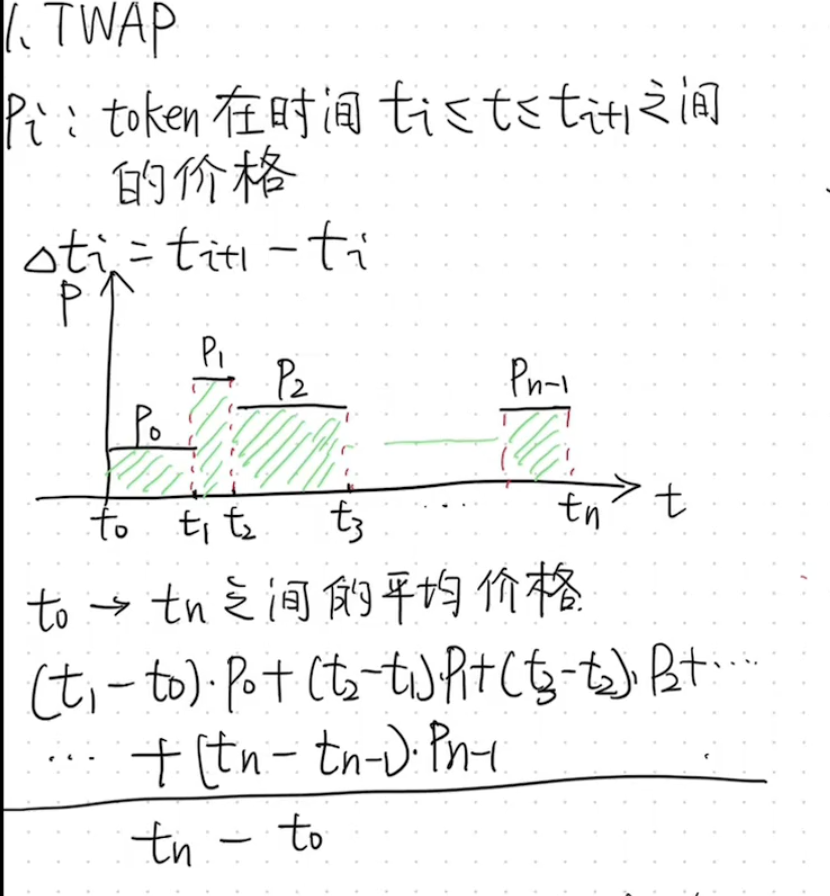 1、TWAP
Pi: token在时间 ti≤t≤ti+1之间
的价格
△ti = ti+1 - ti
P
P0 P1 P2 Pn-1
t0 t1 t2 t3 ... tn t
t0 → tn 之间的平均价格
(t1-t0)·P0+(t2-t1)·P1+(t3-t2)·P2+...
... +(tn-tn-1)·Pn-1
tn - t0